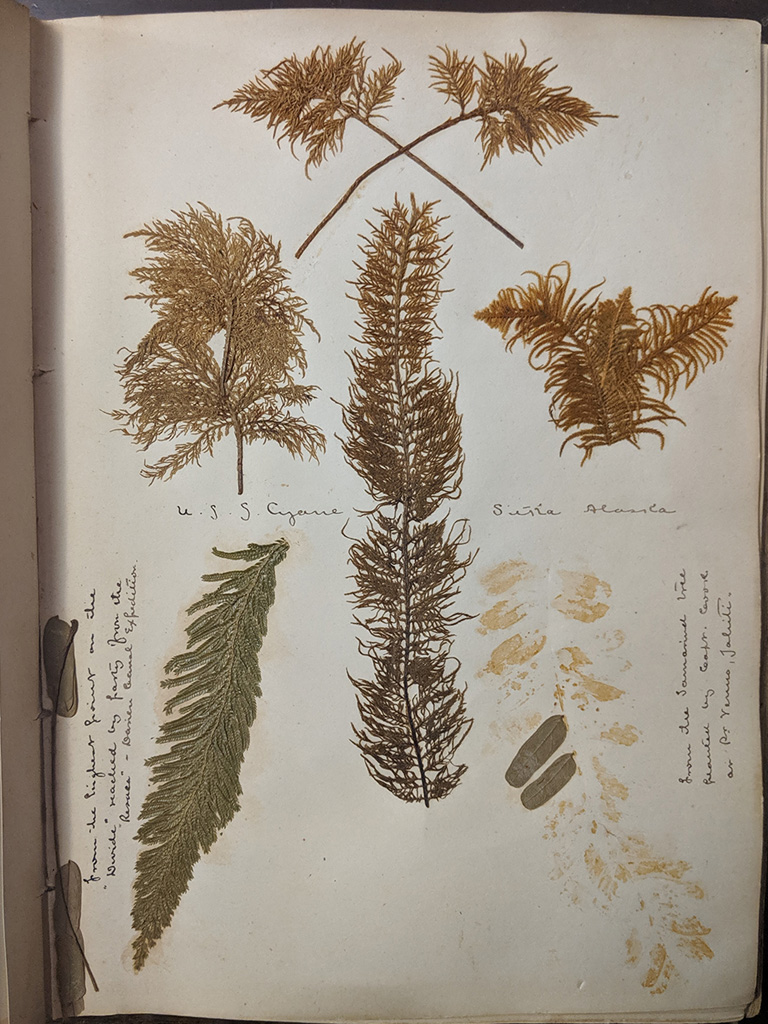 U.S.S. Cyane
Sitka Alaska
From the highest point on the
"Divide" reached by party from the
- Darien Canal Expedition.
From the Tamarind tree
planted by Capt. Cook
at Pt Venus, Tahiti.